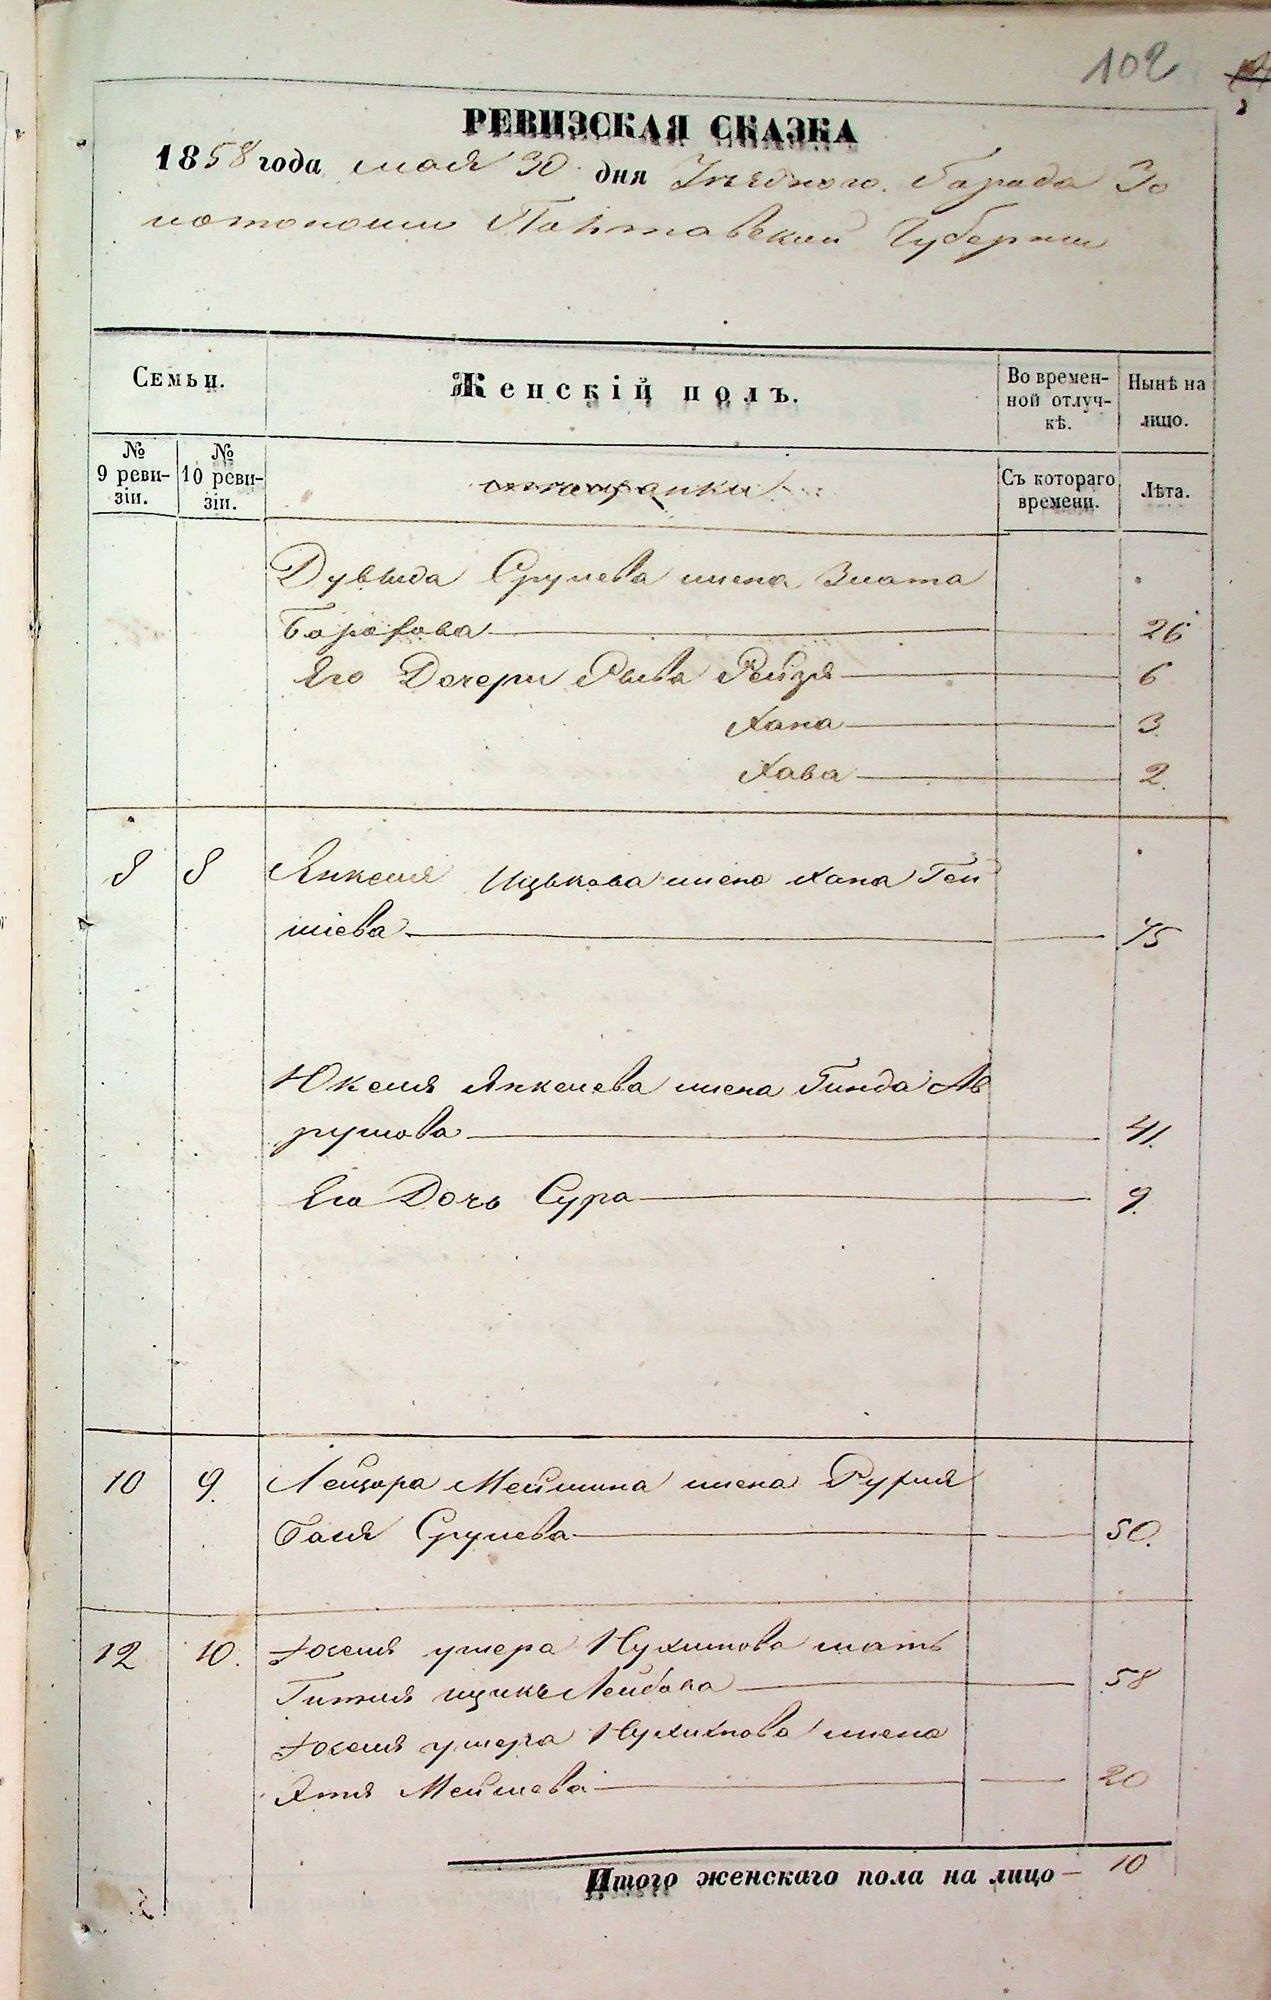 102
РЕВИЗСКАЯ СКАЗКА
1858 года мая 30 дня Уезднаго города Зо
лотоноши Полтавской Губернии
Семьи.
Женскій полъ.
Во времен-
ной отлуч-
кѣ.
Нынѣ на
лицо.
№
9 реви-
зіи.
№
10 реви-
зіи.
Съ котораго
времени.
Лѣта.
Дувыда Срулева жена Злата
Борохова 26
Его Дочери Рыва Рейзя 6
Хана 3
Хава 2.
8 8 Янкеля Ицькова жена Хана Гей
шіева 75
Юкеля Янкелева жена Гинда Ав
румова 41.
Его Дочь Сура 9.
10 9. Лейзора Мейшина жена
Бася Срулева 50.
12 10. умера Нухимова мать
Гитля ицикъ Лейбова 58
умера Нухимова жена
Мейшева 20
Итого женскаго пола на лицо — 10